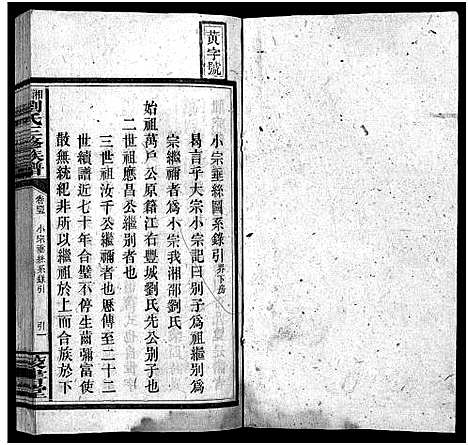 黃字號
小宗垂絲圖系錄引 界下房
曷言乎大宗小宗記曰別子為祖繼別為
宗繼禰者為小宗我湘邵劉氏
始祖萬戶公原籍江右豐城劉氏先公別子也
二世祖應昌公繼別者也
三世祖汝千公繼禰者也歷傳至二十二
世續譜近七十年合璧不停生齒彌富使
散無統紀非所以繼祖於上而合族於下
湘劉氏三修族譜
小宗垂絲系錄引
引一